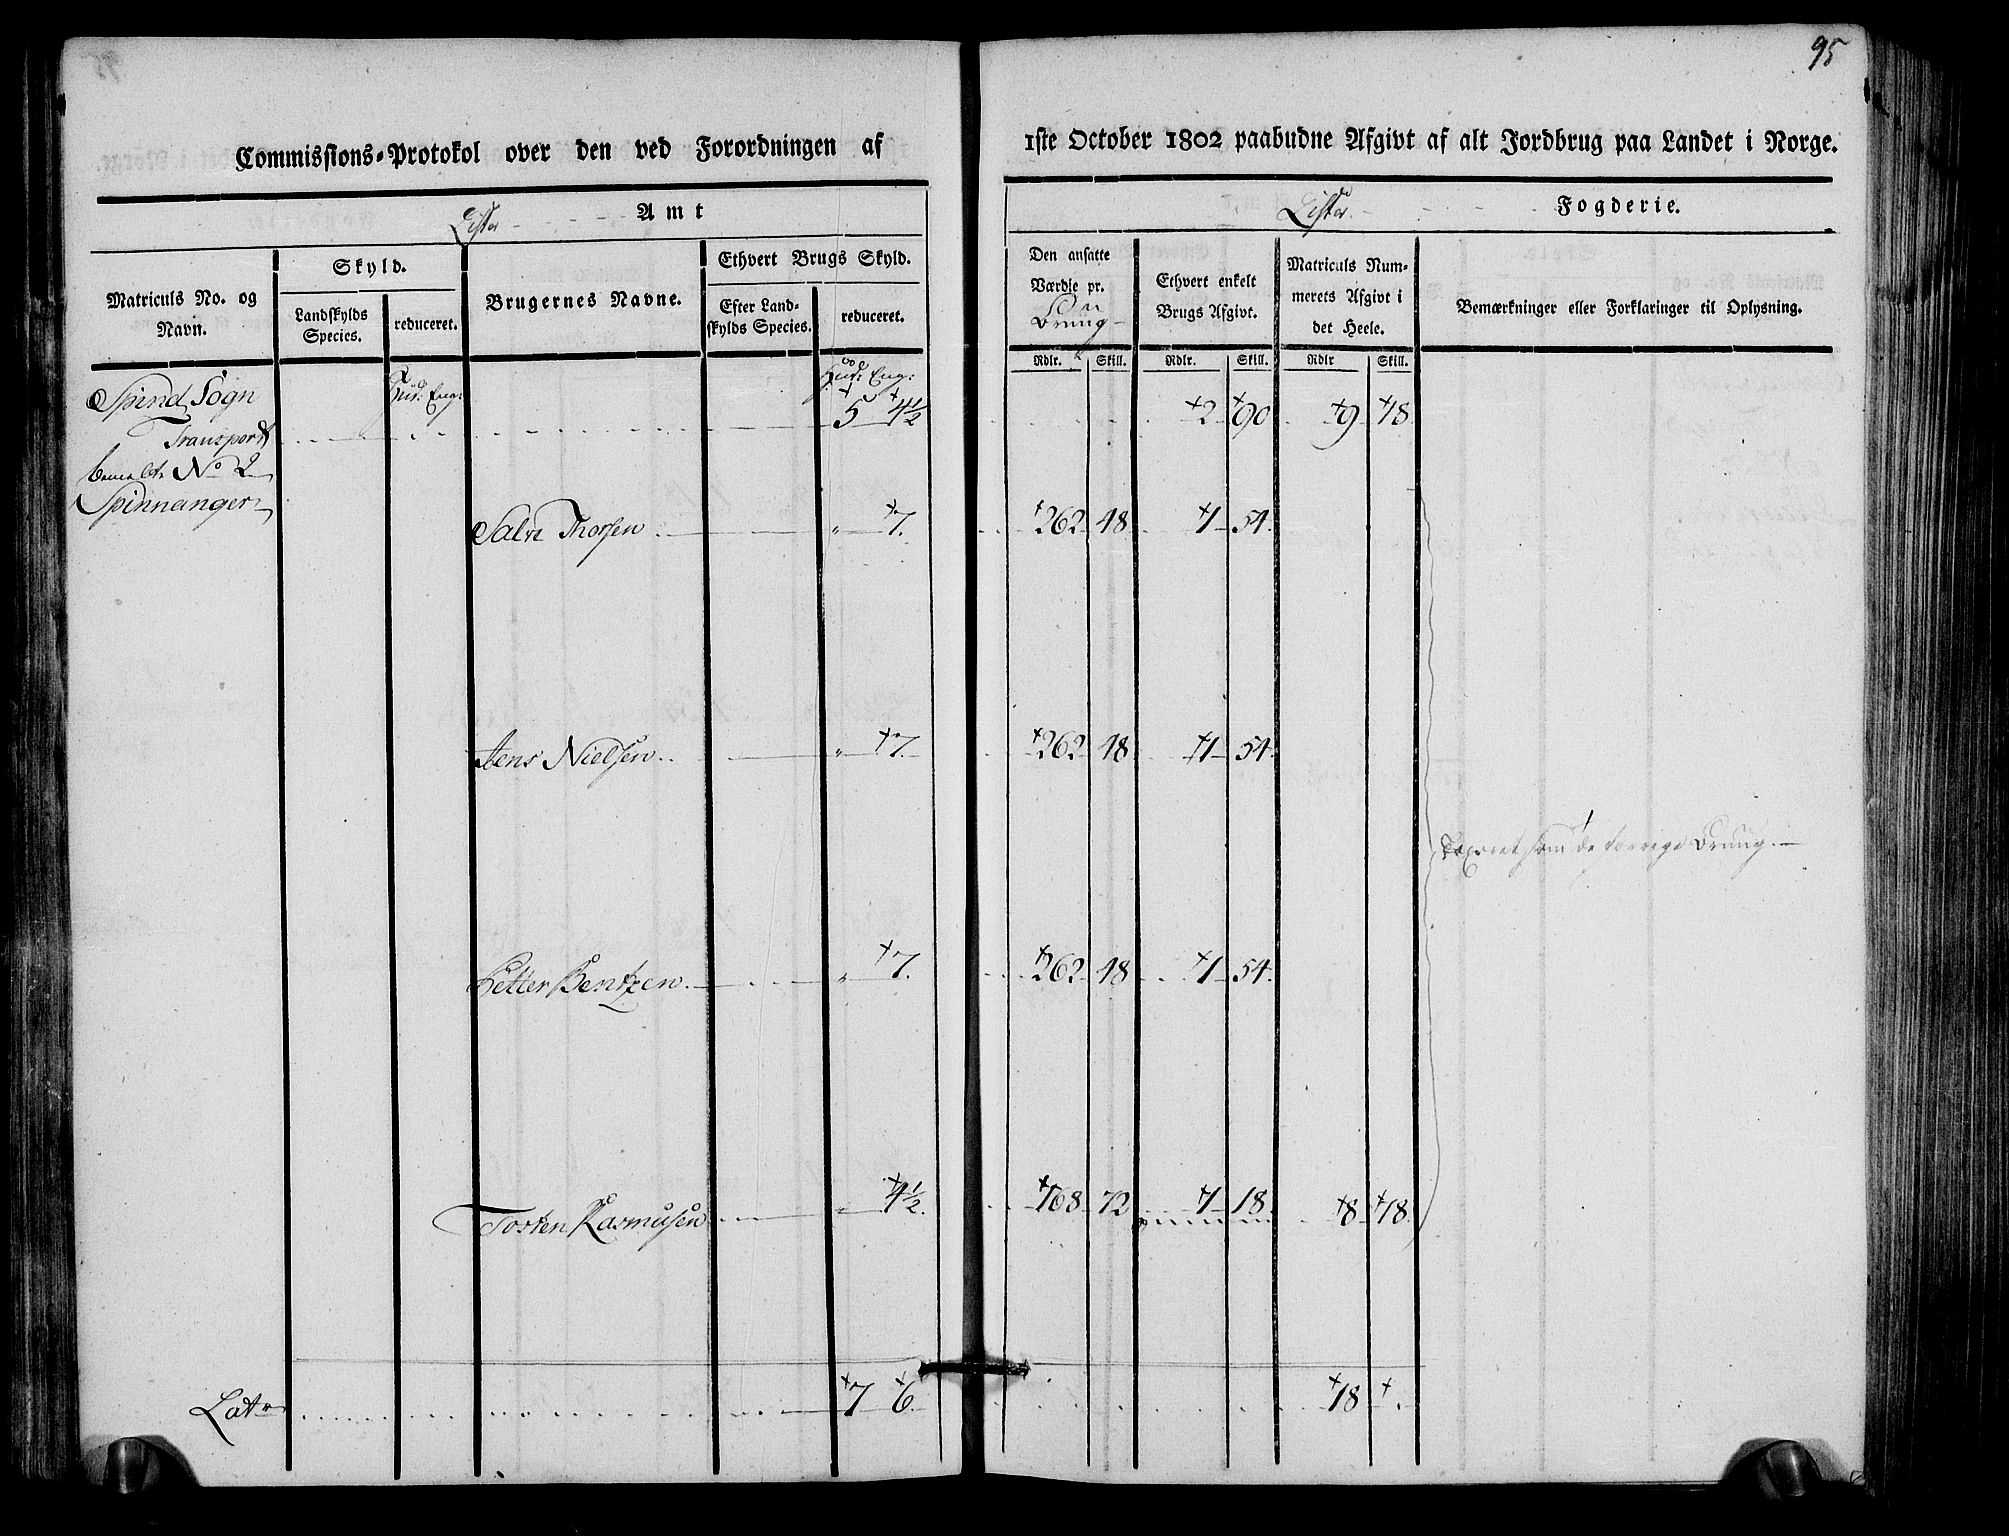 95
Commissions-Protokol over den ved Forordningen af 1ste October 1802 paabudne Afgivt af alt Jordbrug paa Landet i Norge.
Lister Amt
Lister Fogderie.
Matriculs No. og Navn.
Skyld.
Landskylds Species.
reduceret.
Brugernes Navne.
Ethvert Brugs Skyld.
Efter Land-
skylds Species.
reduceret.
Den ansatte
Værdie pr.
Bruug
Ethvert enkelt
Brugs Afgivt.
Matriculs Num-
merets Afgivt i
det Heele.
Bemærkninger eller Forklaringer til Oplysning.
Rdlr. Skill. Rdlr. Skill. Rdlr Skill.
Spind Sogn Hud: Eng: Hud: Eng:
Transport 5 4½ 2 90 9 18
bemelte No 2
Spinnanger
Salve Thorsen " 7. 262 48 1 54.
Jens Nielsen " 7. 262 48 1 54.
Taxeret som de forrige Bruug.
Petter Bentzen " 7. 262 48 1 54.
Tosten Rasmusen " 4½. 168 72 1 18 8 78
Latr 7 6. 18 .